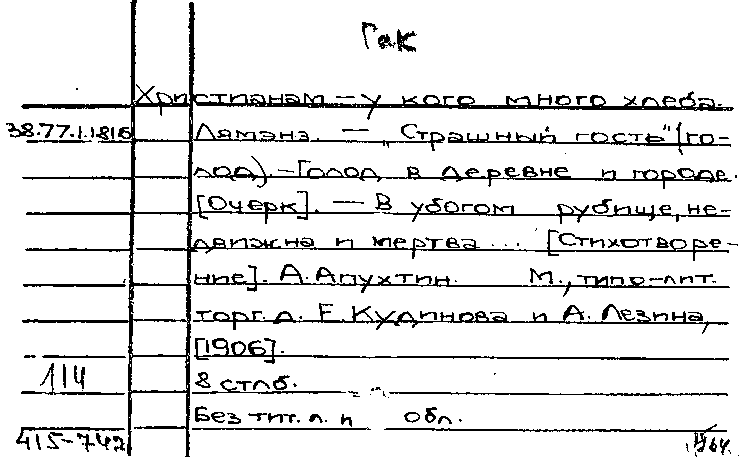 Гак
Христианам – у кого много хлеба.
38.77.1.1816 Лямана. — „Страшный гость" (го-
лод). – Голод в деревне и городе.
[Очерк]. — В убогом рубище, не-
движна и мертва ... [Стихотворе-
ние]. А. Апухтин. М., типо-лит.
торг. д. Е. Кудинова и А. Лезина,
[1906].
114 8 стлб.
Без тит. л. и обл.
415-742